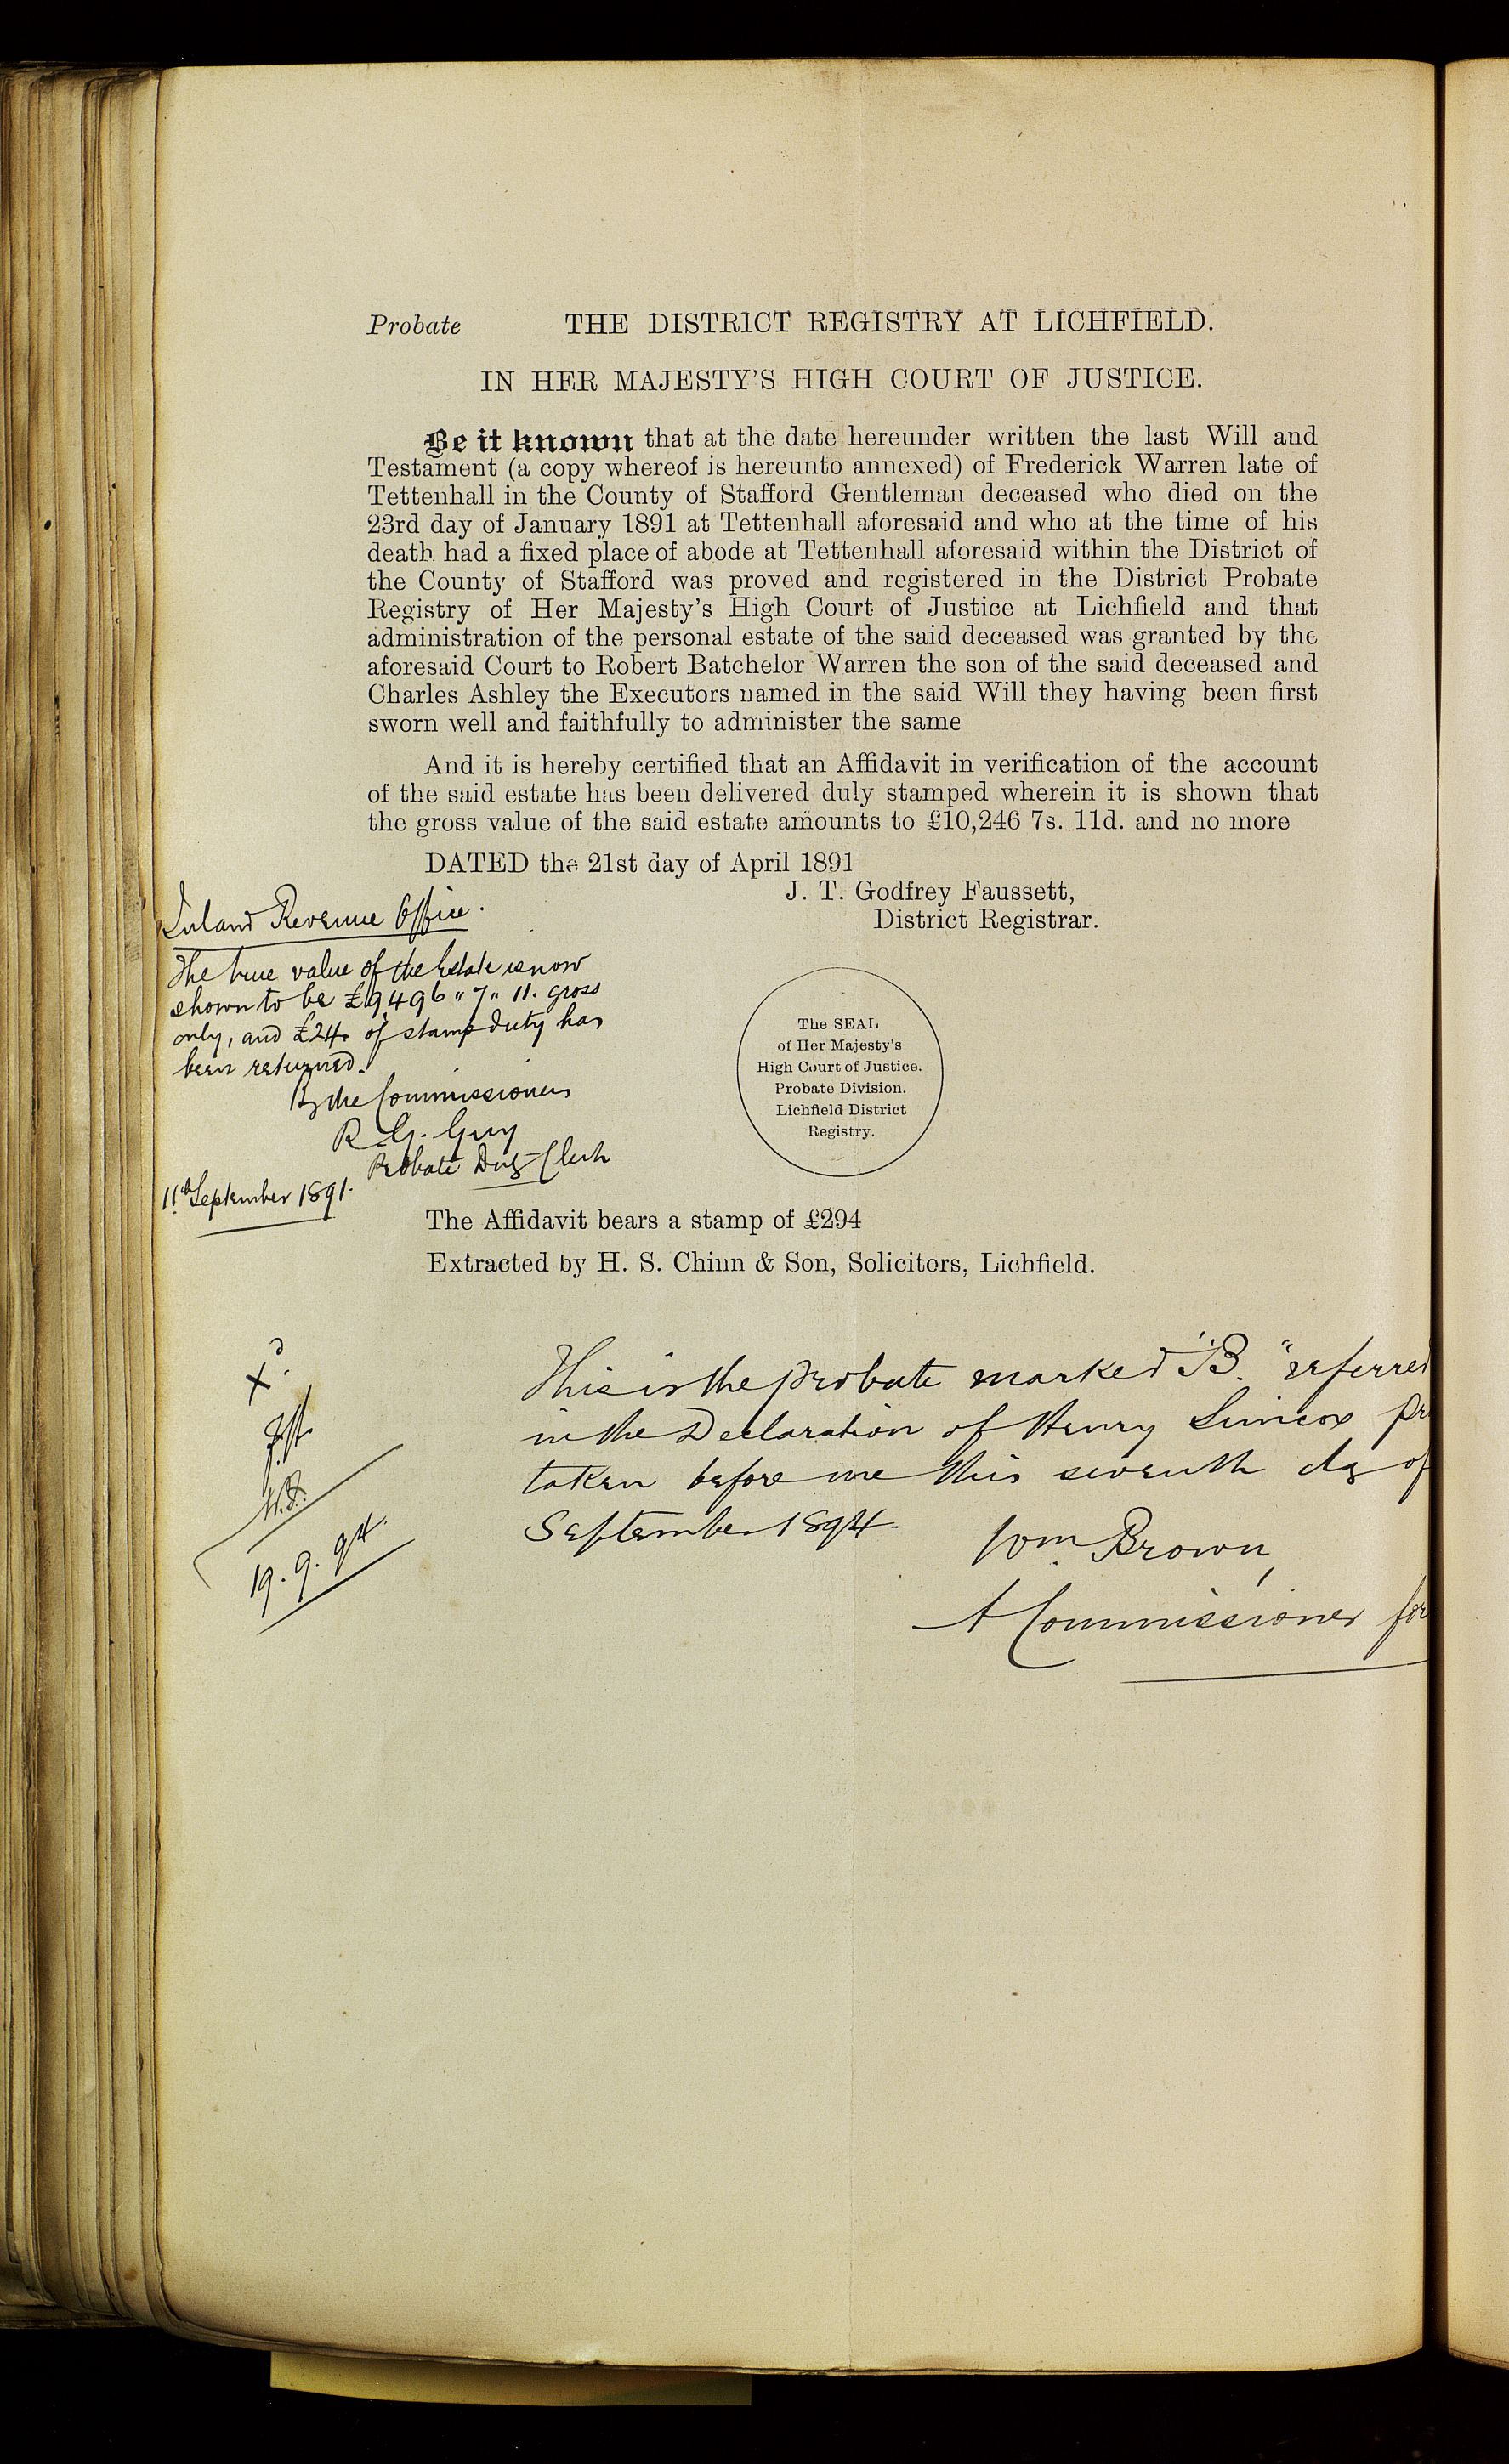 Probate THE DISTRICT REGISTRY AT LICHFIELD.
IN HER MAJESTY'S HIGH COURT OF JUSTICE.
Be it known that at the date hereunder written the last Will and
Testament (a copy whereof is hereunto annexed) of Frederick Warren late of
Tettenhall in the County of Stafford Gentleman deceased who died on the
23rd day of January 1891 at Tettenhall aforesaid and who at the time of his
death had a fixed place of abode at Tettenhall aforesaid within the District of
the County of Stafford was proved and registered in the District Probate
Registry of Her Majesty's High Court of Justice at Lichfield and that
administration of the personal estate of the said deceased was granted by the
aforesaid Court to Robert Batchelor Warren the son of the said deceased and
Charles Ashley the Executors named in the said Will they having been first
sworn well and faithfully to administer the same
And it is hereby certified that an Affidavit in verification of the account
of the said estate has been delivered duly stamped wherein it is shown that
the gross value of the said estate amounts to £10,246 7s. 11d. and no more
DATED the 21st day of April 1891
J. T. Godfrey Faussett,
District Registrar.
Inland Revenue Office.
The true value of the Estate is now
shown to be £9,496 " 7 " 11. gross
only, and £24. of stamp duty has
been returned.
By the Commissioners
R. G. Guy
Probate Duty Clerk
11th September 1891.
The SEAL
of Her Majesty's
High Court of Justice.
Probate Division.
Lichfield District
Registry.
The Affidavit bears a stamp of £294
Extracted by H. S. Chinn & Son, Solicitors, Lichfield.
This is the probate marked "B." referred
in the Declaration of Henry Simcox
taken before me this seventh day of
September 1894.
Wm Brown,
A Commissioner for
Xd.
19. 9. 94.